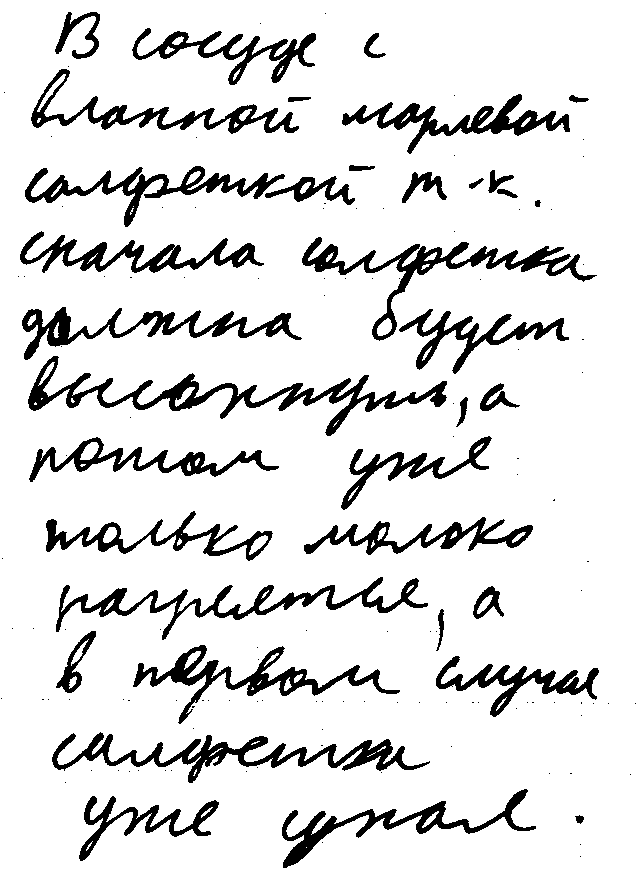 В сосуде с
влажной марлевой
салфеткой т-к.
сначала салфетка
должна будет
высохнуть, а
потом уже
только молоко
нагреется, а
в первом случае
салфетка
уже сухая.